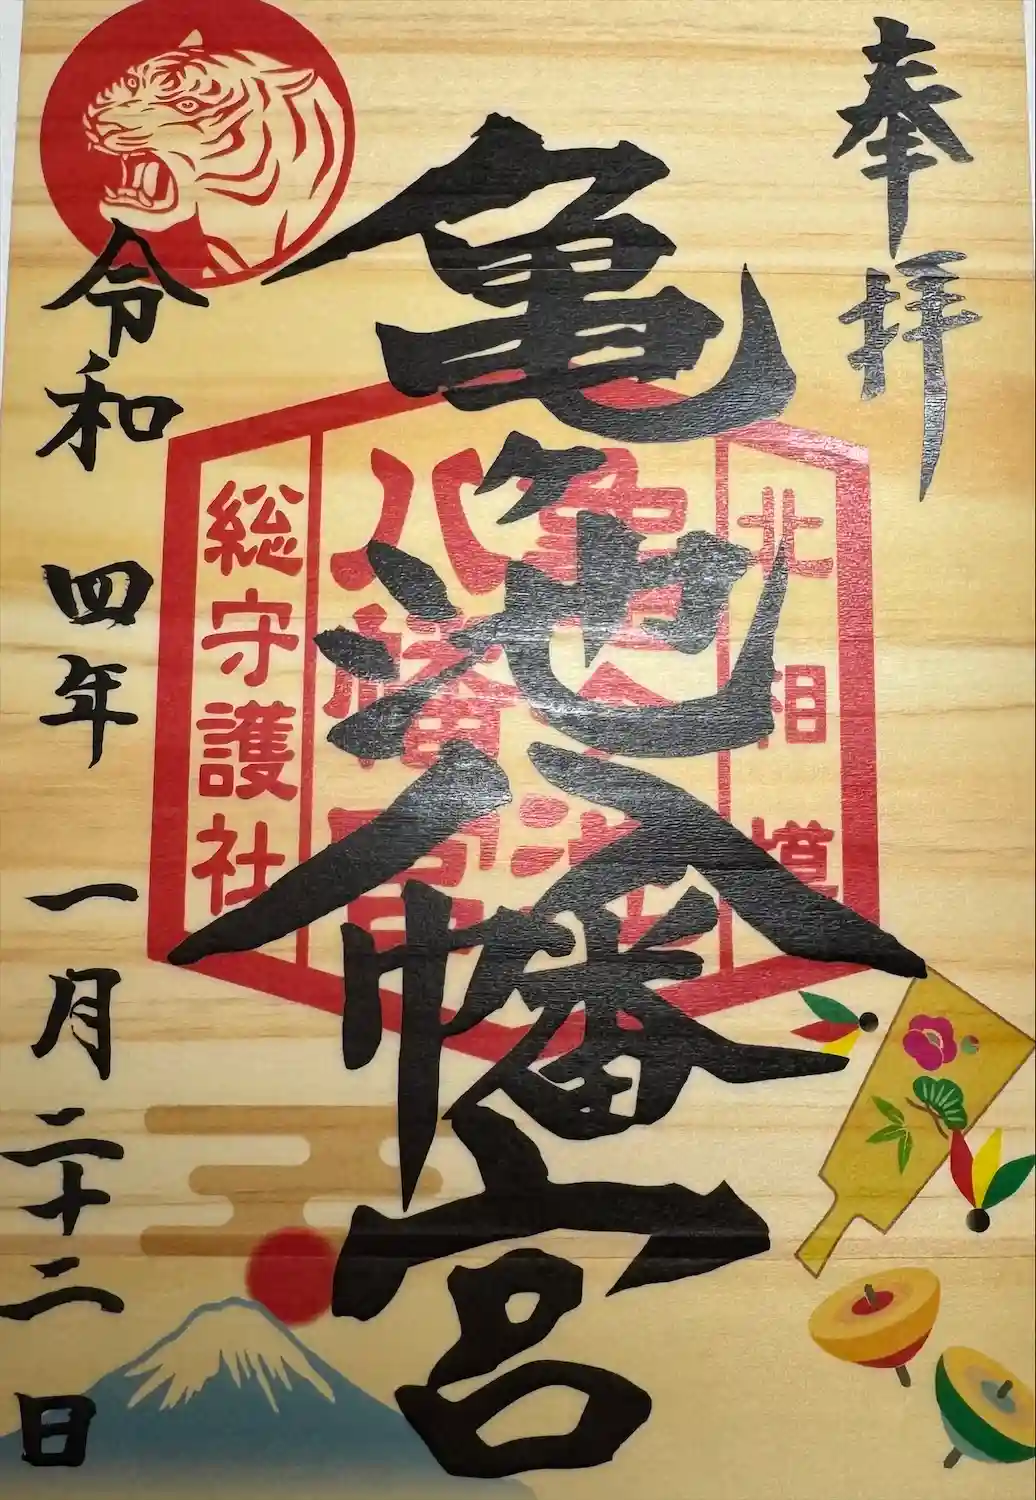 奉拝
亀ヶ池八幡宮
北相模
八幡宮
総守護社
令和四年一月二十二日